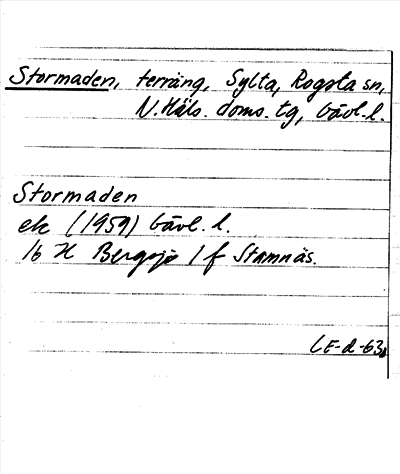 Stormaden, terräng, Sylta, Rogsta sn,
N.Häls. doms. tg, Gävl. l.
Stormaden
ek (1959) Gävl. l.
16 H Bergsjö 1 f Stamnäs.
LE-d-63